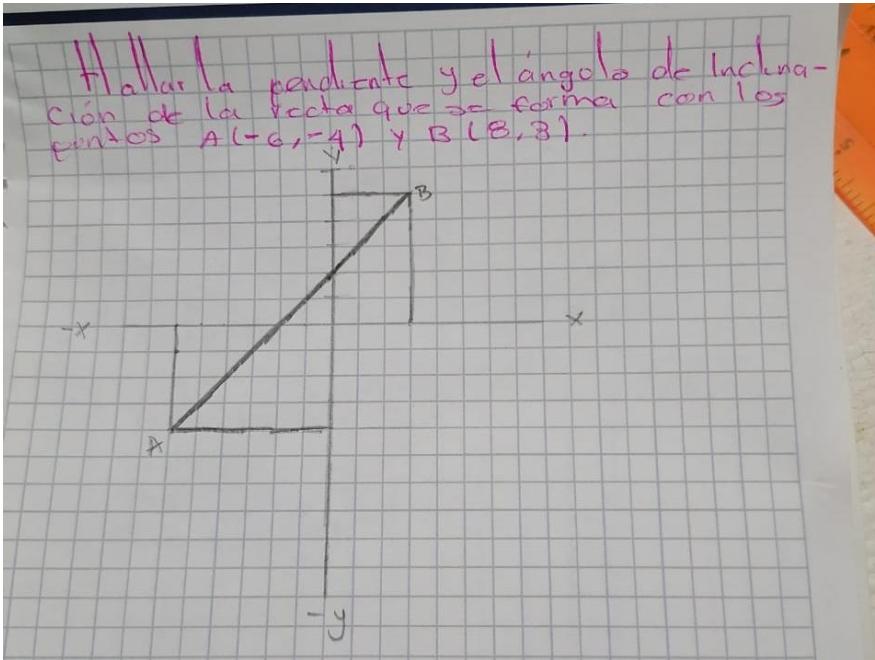 Hallar la pendiente y el ángolo de Inclina-
ción de la recta que se forma con los
puntos A(-6,-4) y B(8,3).
y
B
-x
x
A
-y